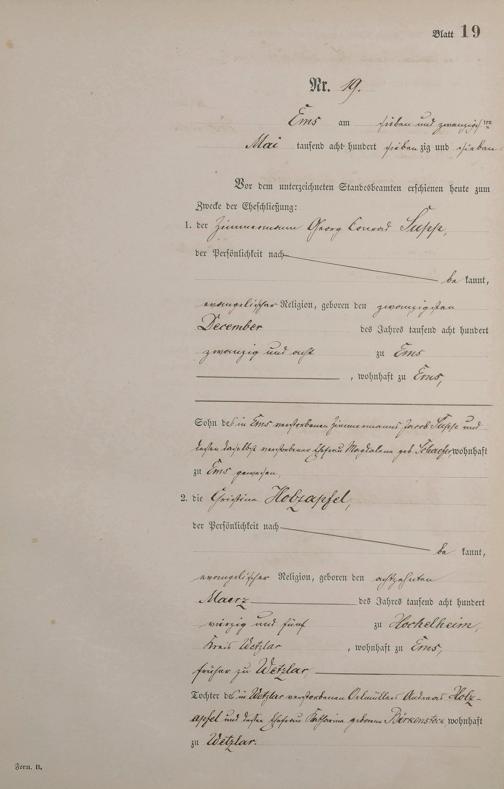 Blatt 19
Nr. 19.
Ems am sieben und zwanzigsten
Mai tausend acht hundert siebenzig und sieben
Vor dem unterzeichneten Standesbeamten erschienen heute zum
Zwecke der Eheschließung:
1. der Zimmermann Georg Conrad Supp,
der Persönlichkeit nach
be kannt,
evangelischer Religion, geboren den zwanzigsten
December des Jahres tausend acht hundert
zwanzig und acht zu Ems
, wohnhaft zu Ems,
Sohn des in Ems verstorbenen Zimmermanns Jacob Supp und
dessen daselbst verstorbener Ehefrau Magdalena geb. Schaefer wohnhaft
zu Ems gewesen.
2. die Christina Holzapfel,
der Persönlichkeit nach
be kannt,
evangelischer Religion, geboren den achtzehnten
Maerz des Jahres tausend acht hundert
vierzig und fünf zu Hochelheim,
Kreis Wetzlar, wohnhaft zu Ems,
früher zu Wetzlar
Tochter des in Wetzlar verstorbenen Oelmüllers Andreas Holz-
apfel und dessen Ehefrau Katharina geborene Birkenstock wohnhaft
zu Wetzlar.
Form. B.